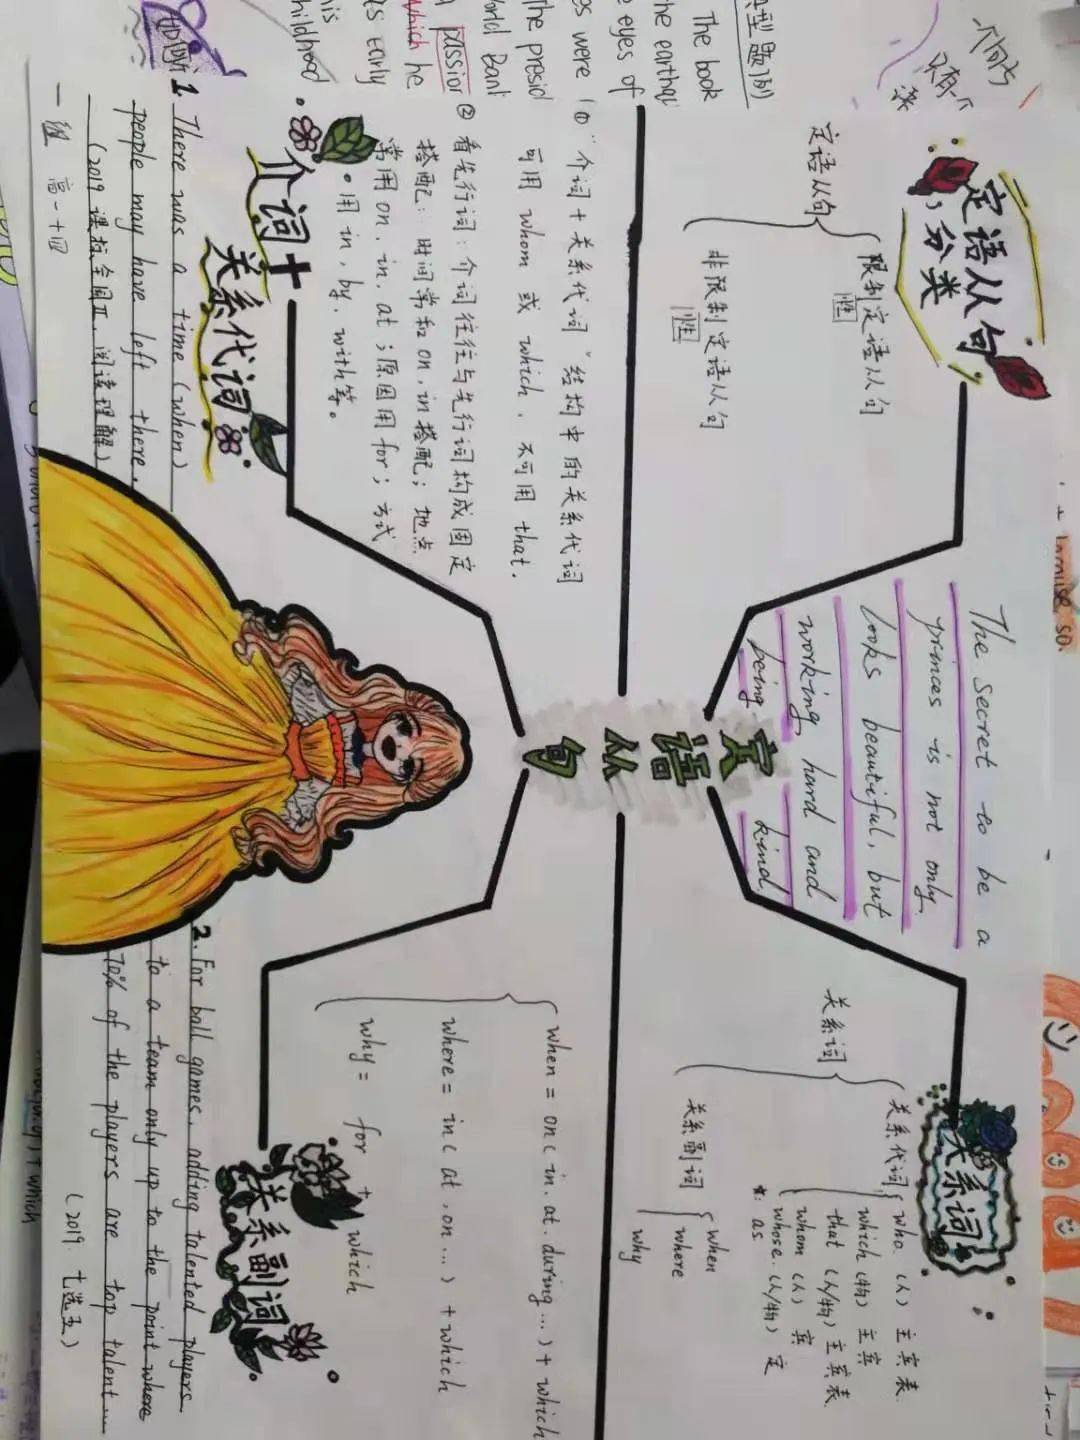 定语从句
定语从句
分类
定语从句
限制定语从句
性
非限制定语从句
性
The secret to be a
princes is not only
looks beautiful, but
working hard and
being kind.
关系词
关系词
关系代词
who (人) 主宾表
which (物) 主宾
that (人/物) 主宾表
whom (人) 宾
whose (人/物) 定
*: as
关系副词
when
where
why
介词+
关系代词
① "介词+关系代词"结构中的关系代词
可用 whom 或 which, 不可用 that.
② 看先行词: 介词往往与先行词构成固定
搭配: 时间常和on, in搭配; 地点
常用on, in, at; 原因用for; 方式
用 in, by, with等。
关系副词
when = on (in, at, during...) + which
where = in (at, on...) + which
why = for + which
1 There was a time (when)
people may have left there.
(2019 课标全国II, 阅读理解)
一组 高一十四
2. For ball games, adding talented players
to a team only up to the point where
70% of the players are top talent...
(2019 七选五)
典型题例
The book
the earthqu
e eyes of
es were
The presid
orld Bank
passion
which he
as early
his
childhood
只有一个
+ which